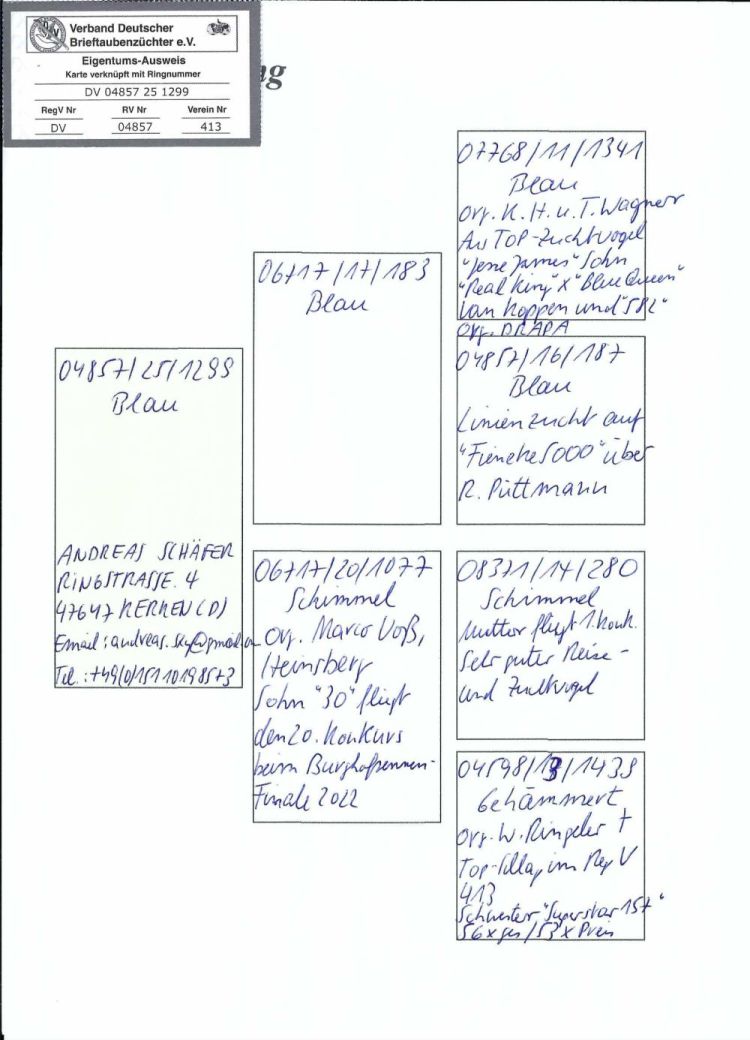 Verband Deutscher
Brieftaubenzüchter e.V.
Eigentums-Ausweis
Karte verknüpft mit Ringnummer
DV 04857 25 1299
RegV Nr RV Nr Verein Nr
DV 04857 413
04857/25/1299
Blau
ANDREAS SCHÄFER
RINGSTRASSE. 4
47647 KERKEN (D)
Email: andreas.
Tel.: +49(0)15110198573
06717/17/183
Blau
06717/20/1077
Schimmel
Org. Marco Voß,
Heinsberg
Sohn "30" fliegt
den 20. Konkurs
beim
Finale 2022
07768/11/1341
Blau
Org. K. H. u. T. Wagner
Aus TOP-Zuchtvogel
"Jesse James" Sohn
"Real King" x "Blue Queen"
van Koppen und "582"
Org. DRAPA
04857/16/187
Blau
Linienzucht auf
"Fieneke 5000" über
R. Püttmann
08371/14/280
Schimmel
Mutter fliegt 1. Konk.
Sehr guter Reise-
und Zuchtvogel
04598/13/1439
Gehämmert
Org. W. Ringeler †
Top-Schlag im Reg V
413
Schwester "Superstar 157"
56 x ges / 53 x Preis